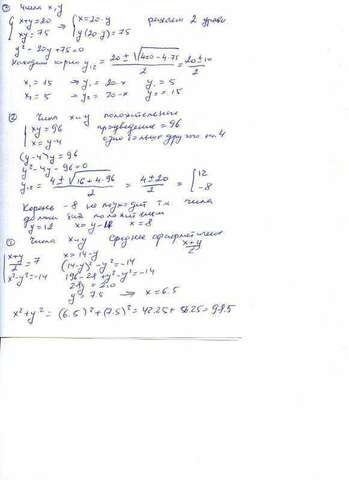 ① Числа x, y
{ x+y=20 xy=75 ⇒ { x=20-y y(20-y)=75 решаем 2 уравн
y²-20y+75=0
Находим корни y₁,₂ = (20±√(400-4·75))/2 = (20±10)/2
x₁=15 ⇒ y₁=20-x y₁=5
x₂=5 ⇒ y₂=20-x y₂=15
② Числа x и y положительные
{ xy=96 произведение = 96
x=y-4 одно больше другого на 4
(y-4)y=96
y²-4y-96=0
y₁,₂ = (4±√(16+4·96))/2 = (4±20)/2 = [ 12 -8
Корень -8 не подходит т.к. числа
должны быть положительными
y=12 x=y-4 x=8
③ Числа x и y Среднее арифметическое (x+y)/2
{ (x+y)/2=7 x=14-y
x²-y²=-14 (14-y)²-y²=-14
196-28y+y²-y²=-14
28y=210
y=7.5 ⇒ x=6.5
x²+y²=(6.5)²+(7.5)²=42.25+56.25=98.5